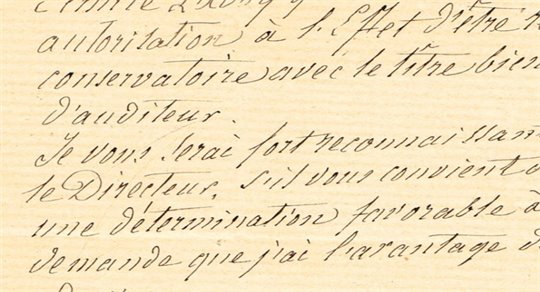 autorisation à l'Effet d'être
conservatoire avec le titre bien
d'auditeur.
Je vous serai fort reconnaissan
le Directeur, s'il vous convient
une détermination favorable à
demande que j'ai l'avantage d